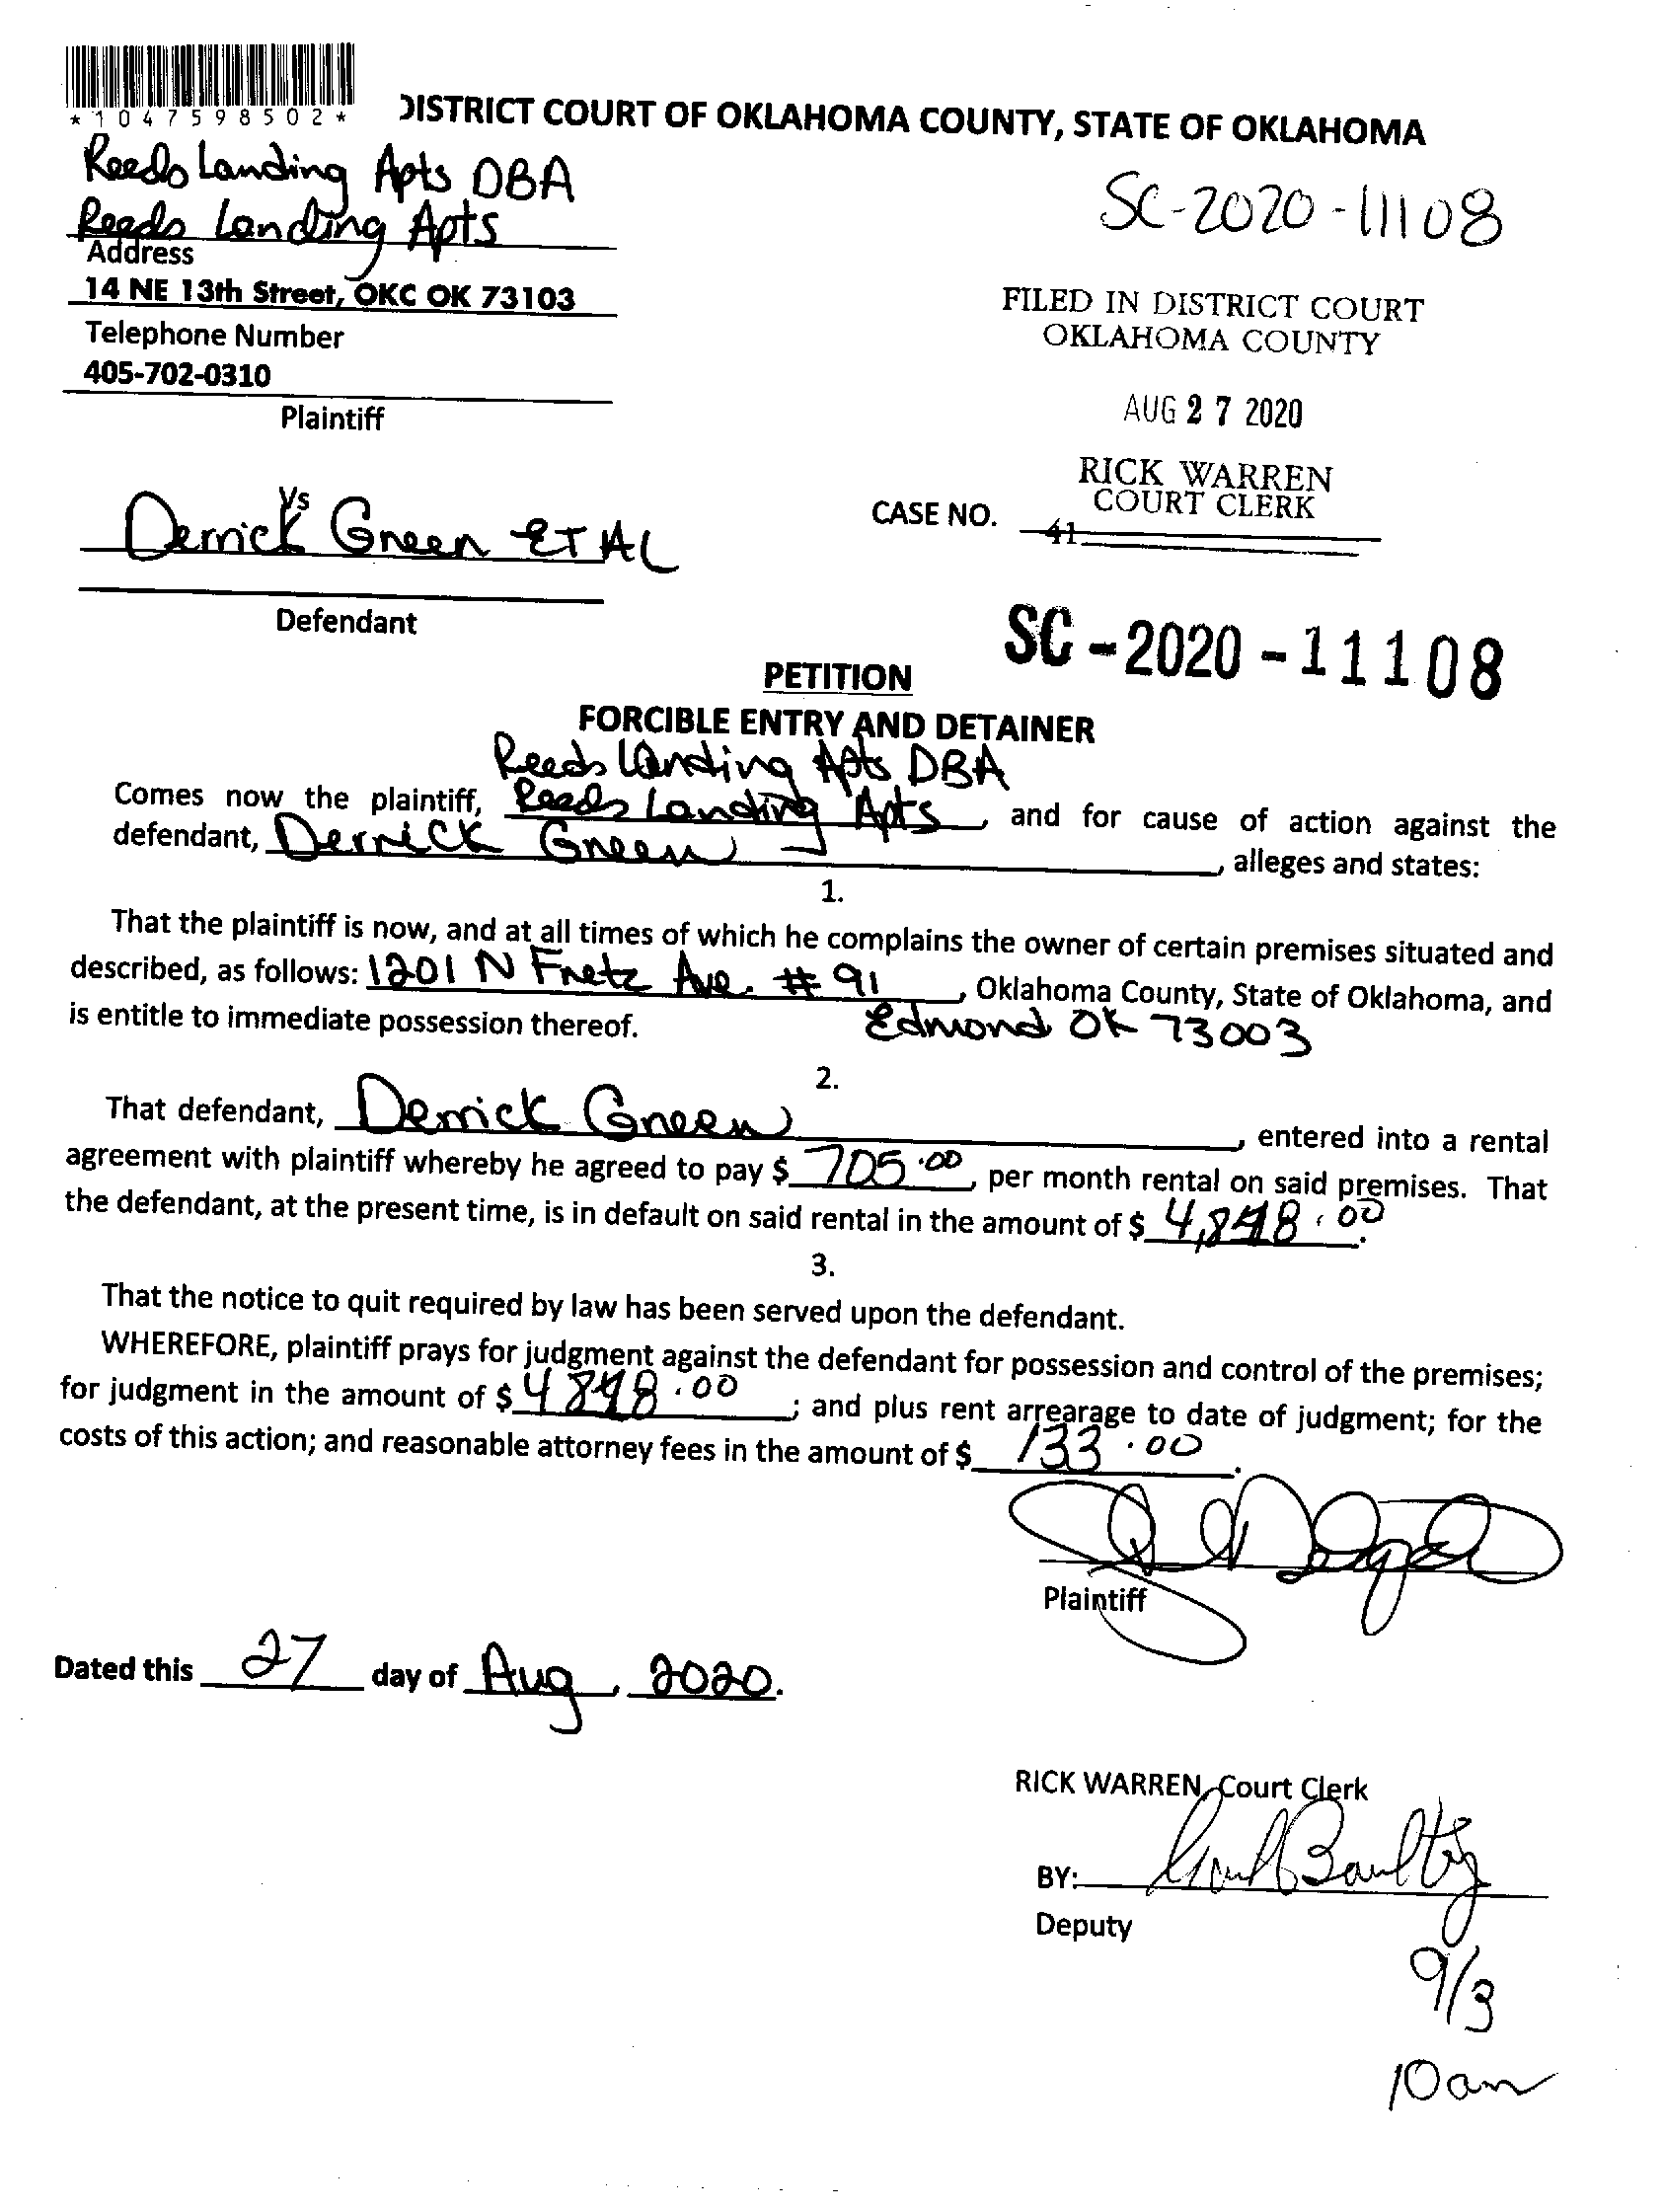 *1047598502*
DISTRICT COURT OF OKLAHOMA COUNTY, STATE OF OKLAHOMA
Reeds Landing Apts DBA
Reeds Landing Apts
SC-2020-11108
Address
14 NE 13th Street, OKC OK 73103
FILED IN DISTRICT COURT
OKLAHOMA COUNTY
Telephone Number
405-702-0310
Plaintiff
AUG 27 2020
RICK WARREN
COURT CLERK
Vs
Derrick Green ET AL
CASE NO.
41
Defendant
SC-2020-11108
PETITION
FORCIBLE ENTRY AND DETAINER
Reeds Landing Apts DBA
Comes now the plaintiff, Reeds Landing Apts, and for cause of action against the
defendant, Derrick Green, alleges and states:
1.
That the plaintiff is now, and at all times of which he complains the owner of certain premises situated and
described, as follows: 1201 N Fretz Ave. # 91, Oklahoma County, State of Oklahoma, and
is entitle to immediate possession thereof. Edmond OK 73003
2.
That defendant, Derrick Green, entered into a rental
agreement with plaintiff whereby he agreed to pay $ 705.00, per month rental on said premises. That
the defendant, at the present time, is in default on said rental in the amount of $
3.
That the notice to quit required by law has been served upon the defendant.
WHEREFORE, plaintiff prays for judgment against the defendant for possession and control of the premises;
for judgment in the amount of $ ; and plus rent arrearage to date of judgment; for the
costs of this action; and reasonable attorney fees in the amount of $ 133.00.
Plaintiff
Dated this 27 day of Aug, 2020.
RICK WARREN, Court Clerk
BY:
Deputy
9/3
10am